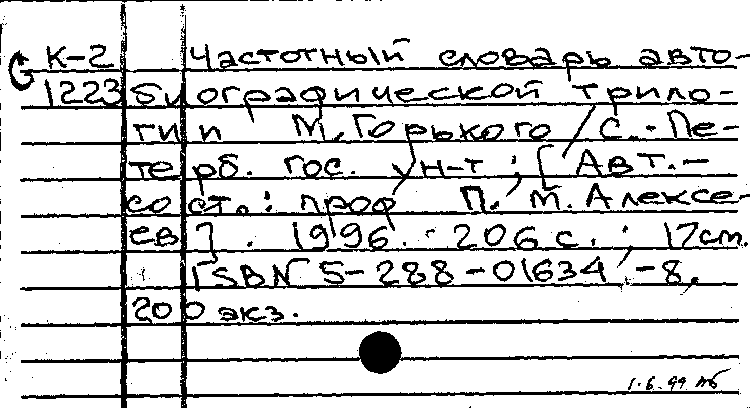 К-2 Частотный словарь авто-
1223 биографической трило-
гии М. Горького / С.-Пе-
терб. гос. ун-т ; [Авт.-
сост.: проф П. М. Алексе-
ев]. 1996. - 206 с. ; 17 cm.
ISBN 5-288-01634-8.
200 экз.
1.6.99